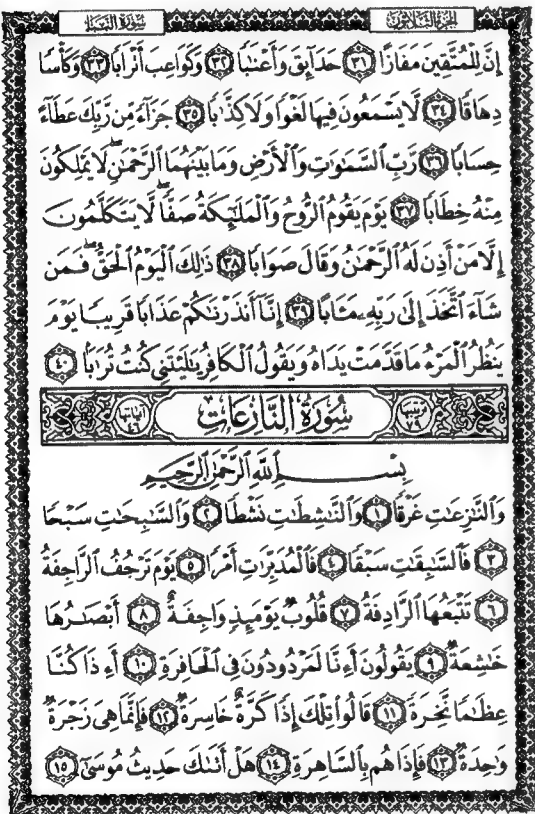 الجزء الثلاثون
سورة النبأ
إِنَّ لِلْمُتَّقِينَ مَفَازًا ٣١ حَدَآئِقَ وَأَعْنَٰبًا ٣٢ وَكَوَاعِبَ أَتْرَابًا ٣٣ وَكَأْسًا
دِهَاقًا ٣٤ لَّا يَسْمَعُونَ فِيهَا لَغْوًا وَلَا كِذَّٰبًا ٣٥ جَزَآءً مِّن رَّبِّكَ عَطَآءً
حِسَابًا ٣٦ رَّبِّ ٱلسَّمَٰوَٰتِ وَٱلْأَرْضِ وَمَا بَيْنَهُمَا ٱلرَّحْمَٰنِ ۖ لَا يَمْلِكُونَ
مِنْهُ خِطَابًا ٣٧ يَوْمَ يَقُومُ ٱلرُّوحُ وَٱلْمَلَٰٓئِكَةُ صَفًّا ۖ لَّا يَتَكَلَّمُونَ
إِلَّا مَنْ أَذِنَ لَهُ ٱلرَّحْمَٰنُ وَقَالَ صَوَابًا ٣٨ ذَٰلِكَ ٱلْيَوْمُ ٱلْحَقُّ ۖ فَمَن
شَآءَ ٱتَّخَذَ إِلَىٰ رَبِّهِۦ مَـَٔابًا ٣٩ إِنَّآ أَنذَرْنَٰكُمْ عَذَابًا قَرِيبًا يَوْمَ
يَنظُرُ ٱلْمَرْءُ مَا قَدَّمَتْ يَدَاهُ وَيَقُولُ ٱلْكَافِرُ يَٰلَيْتَنِى كُنتُ تُرَٰبًا ٤٠
ترتيبها ٧٩ سُورَةُ النَّازِعَاتِ آياتها ٤٦
بِسْمِ ٱللَّهِ ٱلرَّحْمَٰنِ ٱلرَّحِيمِ
وَٱلنَّٰزِعَٰتِ غَرْقًا ١ وَٱلنَّٰشِطَٰتِ نَشْطًا ٢ وَٱلسَّٰبِحَٰتِ سَبْحًا
٣ فَٱلسَّٰبِقَٰتِ سَبْقًا ٤ فَٱلْمُدَبِّرَٰتِ أَمْرًا ٥ يَوْمَ تَرْجُفُ ٱلرَّاجِفَةُ
٦ تَتْبَعُهَا ٱلرَّادِفَةُ ٧ قُلُوبٌ يَوْمَئِذٍ وَاجِفَةٌ ٨ أَبْصَٰرُهَا
خَٰشِعَةٌ ٩ يَقُولُونَ أَءِنَّا لَمَرْدُودُونَ فِى ٱلْحَافِرَةِ ١٠ أَءِذَا كُنَّا
عِظَٰمًا نَّخِرَةً ١١ قَالُوا۟ تِلْكَ إِذًا كَرَّةٌ خَاسِرَةٌ ١٢ فَإِنَّمَا هِىَ زَجْرَةٌ
وَٰحِدَةٌ ١٣ فَإِذَا هُم بِٱلسَّاهِرَةِ ١٤ هَلْ أَتَىٰكَ حَدِيثُ مُوسَىٰٓ ١٥